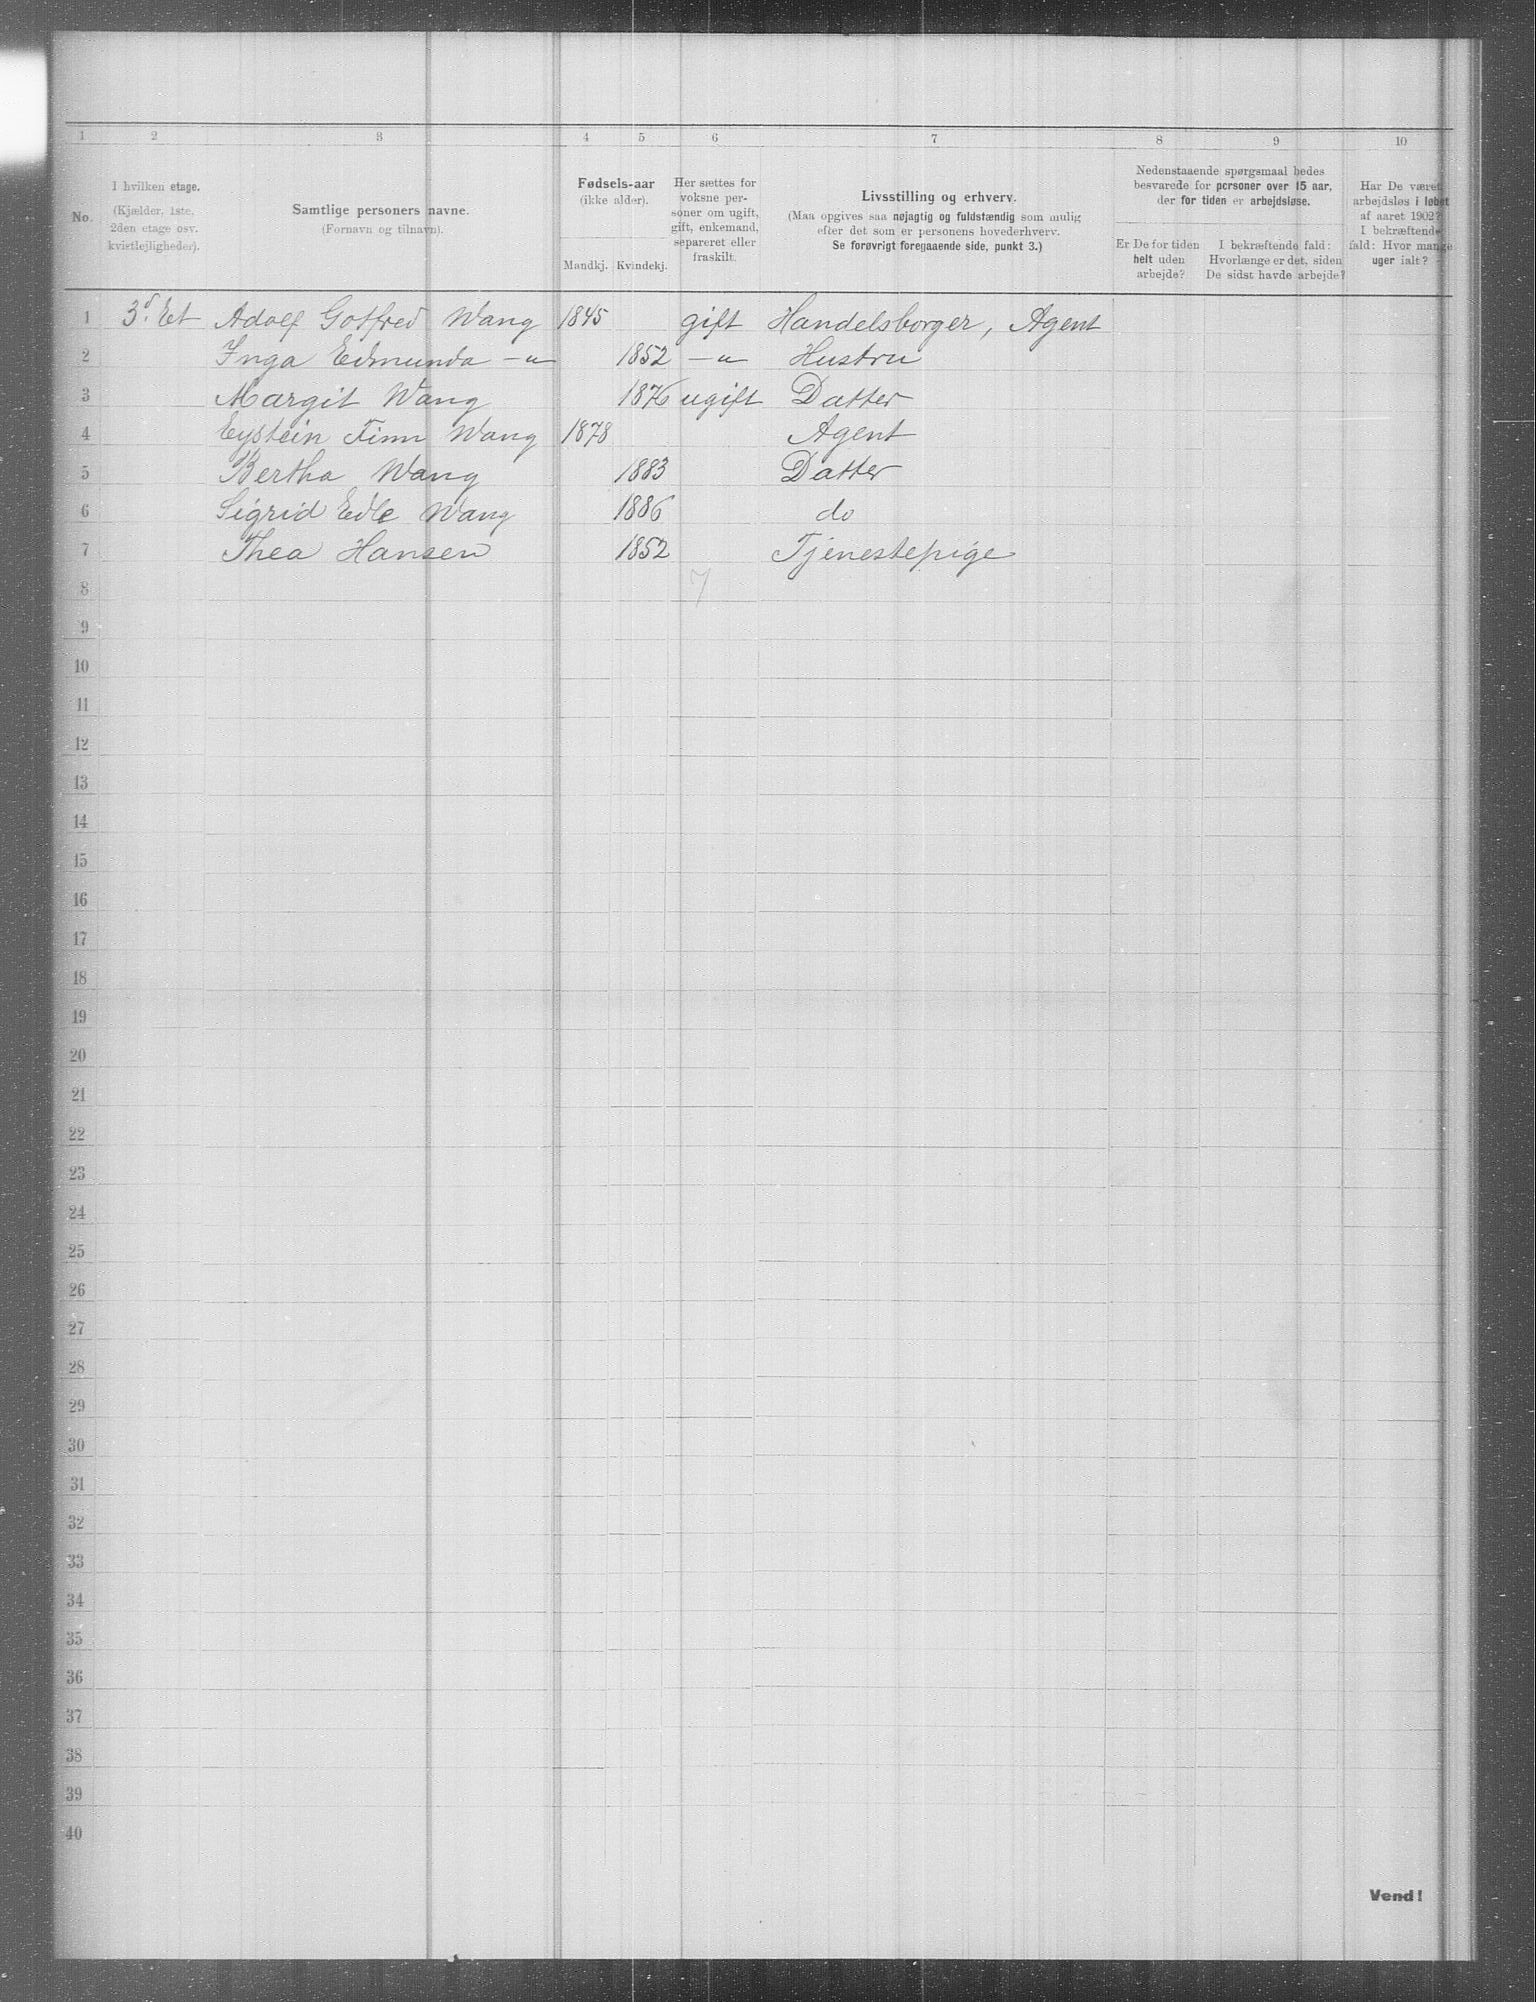 1 2 3 4 5 6 7 8 9 10
No.
I hvilken etage.
(Kjælder, 1ste,
2den etage osv.
kvistlejligheder).
Samtlige personers navne.
(Fornavn og tilnavn).
Fødsels-aar
(ikke alder).
Mandkj. Kvindekj.
Her sættes for
voksne per-
soner om ugift,
gift, enkemand,
separeret eller
fraskilt.
Livsstilling og erhverv.
(Maa opgives saa nøjagtig og fuldstændig som mulig
efter det som er personens hovederhverv.
Se forøvrigt foregaaende side, punkt 3.)
Nedenstaaende spørgsmaal bedes
besvarede for personer over 15 aar,
der for tiden er arbejdsløse.
Er De for tiden
helt uden
arbejde?
I bekræftende fald:
Hvorlænge er det, siden
De sidst havde arbejde?
Har De været
arbejdsløs i løbet
af aaret 1902?
I bekræftende
fald: Hvor mange
uger ialt?
1 3d. Et Adolf Gotfred Wang 1845 gift Handelsborger, Agent
2 Inga Edmunda —"— 1852 —"— Hustru
3 Margit Wang 1876 ugift Datter
4 Eystein Finn Wang 1878 Agent
5 Bertha Wang 1883 Datter
6 Sigrid Edle Wang 1886 do
7 Thea Hansen 1852 Tjenestepige
8 7
9
10
11
12
13
14
15
16
17
18
19
20
21
22
23
24
25
26
27
28
29
30
31
32
33
34
35
36
37
38
39
40
Vend!